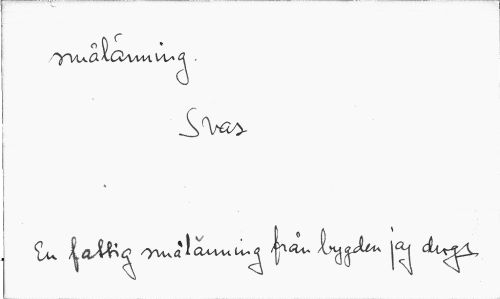 smålänning.
Svas
En fattig smålänning från bygden jag drogs